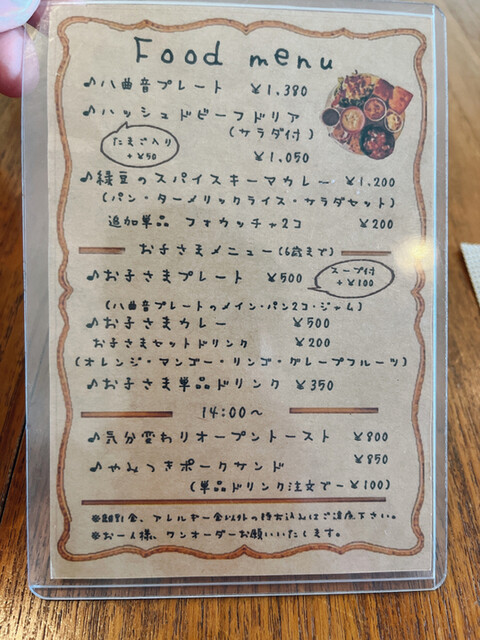 Food menu
♪八曲音プレート ¥1,380
♪ハッシュドビーフドリア
(サラダ付)
たまご入り
+¥50
¥1,050
♪緑豆のスパイスキーマカレー ¥1,200
(パン・ターメリックライス・サラダセット)
追加単品 フォカッチャ2コ ¥200
お子さまメニュー(6歳まで)
♪お子さまプレート ¥500
スープ付
+¥100
(八曲音プレートのメイン・パン2コ・ジャム)
♪お子さまカレー ¥500
お子さまセットドリンク ¥200
(オレンジ・マンゴー・リンゴ・グレープフルーツ)
♪お子さま単品ドリンク ¥350
14:00〜
♪気分変わりオープントースト ¥800
♪やみつきポークサンド ¥850
(単品ドリンク注文で-¥100)
※離乳食、アレルギー食以外の持ち込みはご遠慮下さい。
※お一人様、ワンオーダーお願いいたします。